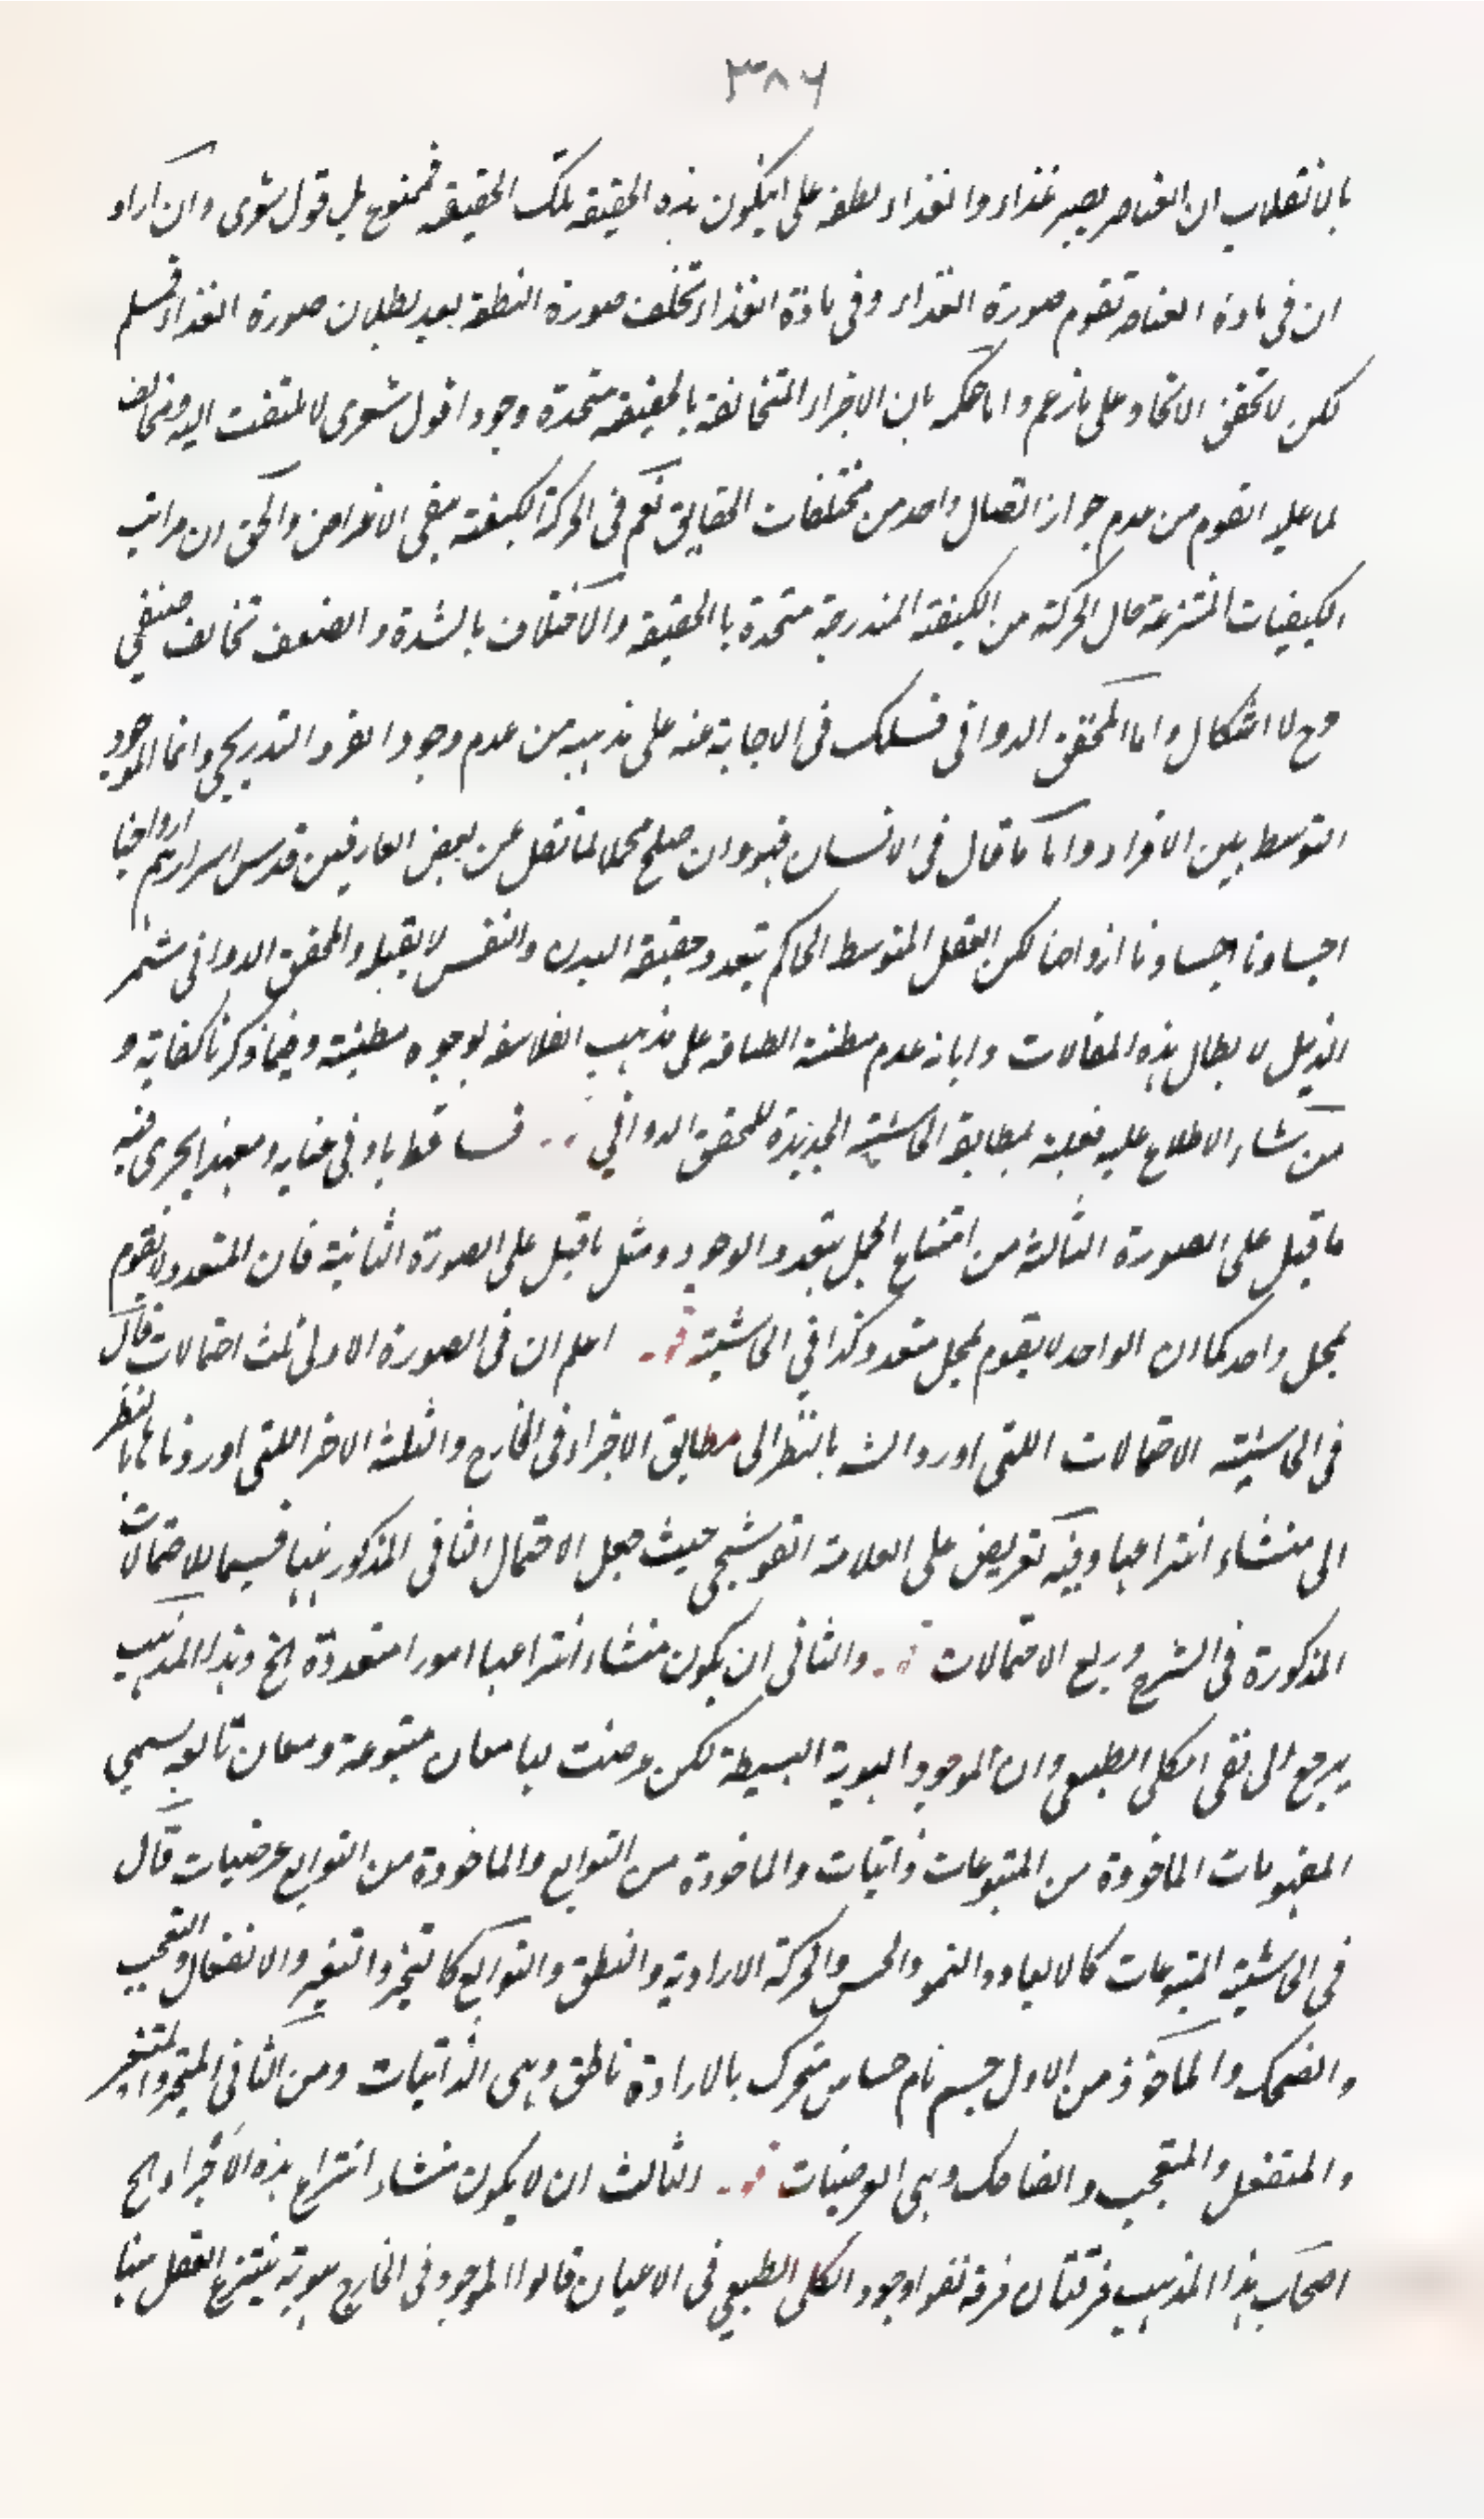 ٣٨٦
بالانقلاب ان العناصر يصير غذاء والغذاء نطفة على ان يكون هذه الحقيقة تلك الحقيقة فممنوع بل قول شعرى وان اراد
ان فى مادة العناصر تقوم صورة الغذاء وفى مادة الغذاء تخلف صورة النطفة بعد بطلان صورة الغذاء فمسلم
لكن لا تحقق الاتحاد على ما زعم واما حكمه بان الاجزاء المتخالفة بالحقيقة متحدة وجودا قول شعرى لا يلتفت اليه ومخالف
لما عليه القوم من عدم جواز اتصال واحد من مختلفات الحقايق نعم فى الحركة الكيفية بقى الاعراض والحق ان مراتب
الكيفيات المنتزعة حال الحركة من الكيفية المتدرجة متحدة بالحقيقة والاختلاف بالشدة والضعف تخالف صنفى
وح لا اشكال واما المحقق الدوانى فسلك فى الاجابة عنه على مذهبه من عدم وجود الفرد التدريجى وانما الموجود
التوسط بين الافراد واما ما قال فى الانسان فهو وان صلح محملا لما نقل عن بعض العارفين قدس اسرارهم ارواحنا
اجسادنا اجسادنا ارواحنا لكن العقل المتوسط الحاكم بتعدد حقيقة البدن والنفس لا يقبله والمحقق الدوانى شمر
الذيل لابطال هذه المقالات وابانة عدم مظنة الطباقه على مذهب الفلاسفة لوجوه مطنبة وفيما ذكرنا كفاية و
من شاء الاطلاع عليه فعليه بمطالعة الحاشية الجديدة للمحقق الدوانى فساقطا باد فى عنايه ومعهذا يجرى فيه
ما قيل على الصورة الثالثة من امتناع الحمل بتعدد الوجود ومثل ما قيل على الصورة الثانية فان المتعدد لا يقوم
بمحل واحد كما ان الواحد لا يقوم بمحل متعدد كذا فى الحاشية اعلم ان فى الصورة الاولى ثلث احتمالات قال
فى الحاشية الاحتمالات اللتى اوردت بالنظر الى مطابق الاجزاء فى الخارج والثلثة الاخر اللتى اوردناها بالنظر
الى منشاء انتزاعها وفيه تعريض على العلامة القوشجى حيث جعل الاحتمال الثانى المذكور ههنا قسيما للاحتمالات
المذكورة فى الشرح وربع الاحتمالات والثانى ان يكون منشاء انتزاعها امورا متعددة الخ وهذا المذهب
يرجع الى نفى الكلى الطبعى وان الموجود الهوية البسيطة لكن عرضت لها معان متبوعة ومعان تابعة يسمى
المفهومات الماخوذة من المتبوعات ذاتيات والماخوذة من التوابع والماخوذة من التوابع عرضيات قال
فى الحاشية المتبوعات كالابعاد والنمو والحس والحركة الارادية والنطق والتوابع كالتحيز والتغير والانفعال والتعجب
والضحك والماخوذ من الاول جسم نام حساس متحرك بالارادة ناطق وهى الذاتيات ومن الثانى المتحيز والمتغير
والمنفعل والمتعجب والضاحك وهى العرضيات الثالث ان لا يكون منشاء انتزاع هذه الاجزاء الخ
اصحاب هذا المذهب فرقتان فرقة نفوا وجود الكلى الطبعى فى الاعيان قالوا الموجود فى الخارج هوية ينتزع العقل منها